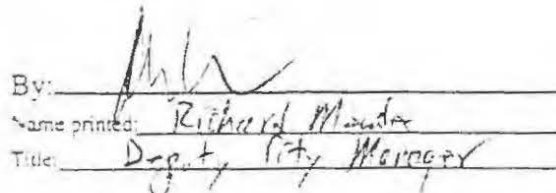 By:
Name printed: Richard
Title: Deputy City Manager